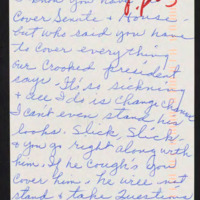 I know you have to
cover Senate & House -
but who said you have
to cover everything
our Crooked president
says. It's so sickning
& all I do is change channel
I can't even stand his
looks. Slick, Slick -
& you go right along with
him. If he cough's you
cover him. he will not
stand & take Questions